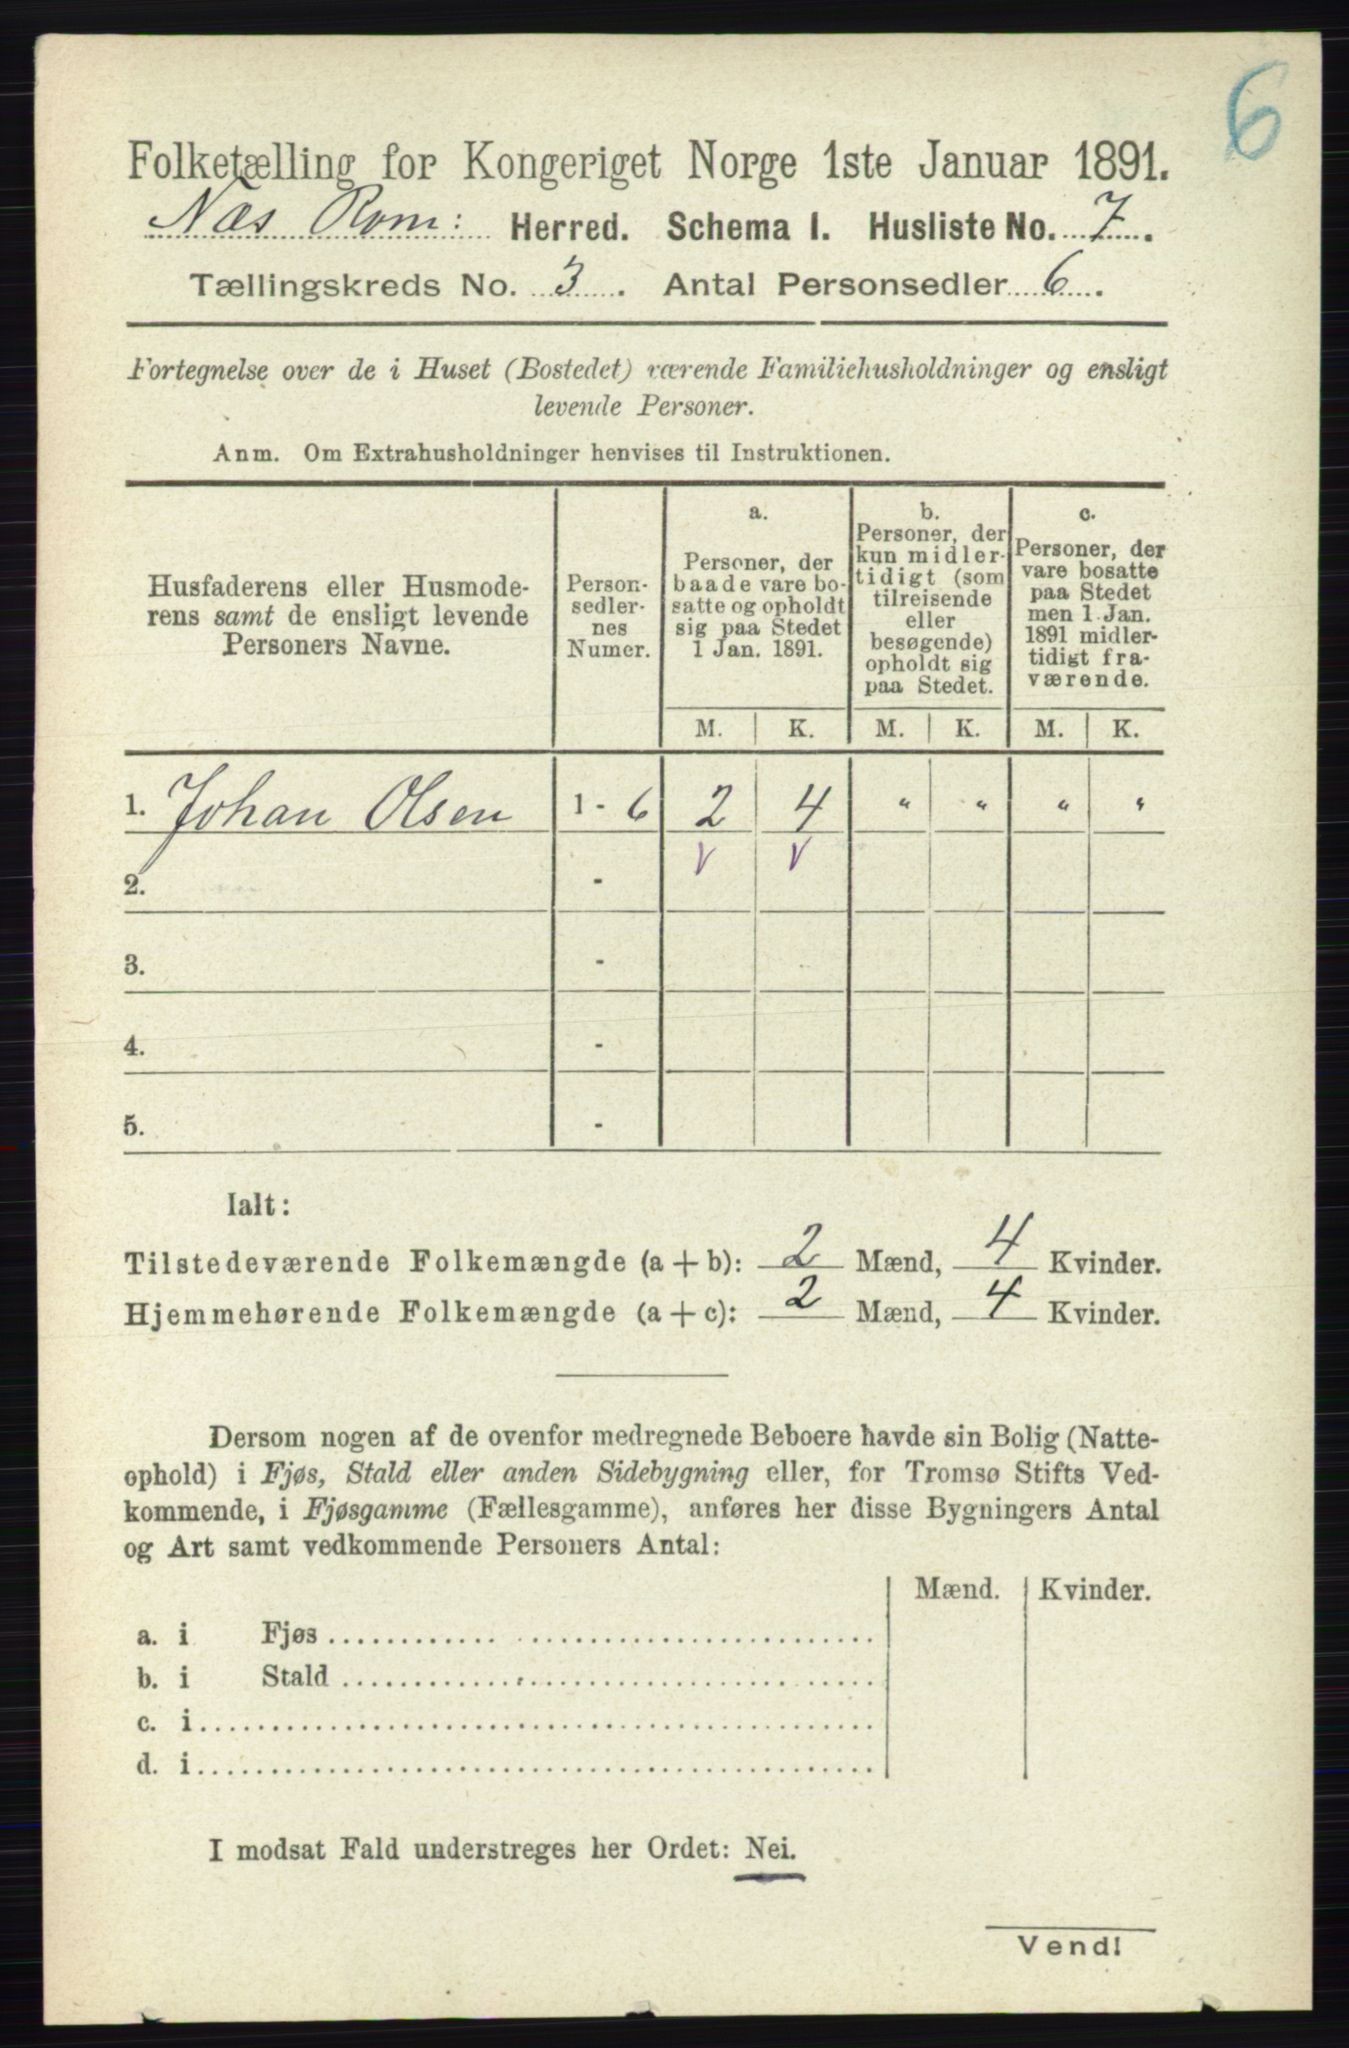 6
Folketælling for Kongeriget Norge 1ste Januar 1891.
Næs Rom: Herred. Schema I. Husliste No. 7.
Tællingskreds No. 3. Antal Personsedler 6.
Fortegnelse over de i Huset (Bostedet) værende Familiehusholdninger og ensligt
levende Personer.
Anm. Om Extrahusholdninger henvises til Instruktionen.
Husfaderens eller Husmode-
rens samt de ensligt levende
Personers Navne.
Person-
sedler-
nes
Numer.
a.
Personer, der
baade vare bo-
satte og opholdt
sig paa Stedet
1 Jan. 1891.
b.
Personer, der
kun midler-
tidigt (som
tilreisende
eller
besøgende)
opholdt sig
paa Stedet.
c.
Personer, der
vare bosatte
paa Stedet
men 1 Jan.
1891 midler-
tidigt fra-
værende.
M. K. M. K. M. K.
1. Johan Olsen 1 - 6 2 4 " " " "
v v
2. -
3. -
4. -
5. -
Ialt:
Tilstedeværende Folkemængde (a + b): 2 Mænd, 4 Kvinder.
Hjemmehørende Folkemængde (a + c): 2 Mænd, 4 Kvinder.
Dersom nogen af de ovenfor medregnede Beboere havde sin Bolig (Natte-
ophold) i Fjøs, Stald eller anden Sidebygning eller, for Tromsø Stifts Ved-
kommende, i Fjøsgamme (Fællesgamme), anføres her disse Bygningers Antal
og Art samt vedkommende Personers Antal:
Mænd. Kvinder.
a. i Fjøs
b. i Stald
c. i
d. i
I modsat Fald understreges her Ordet: Nei.
Vend!